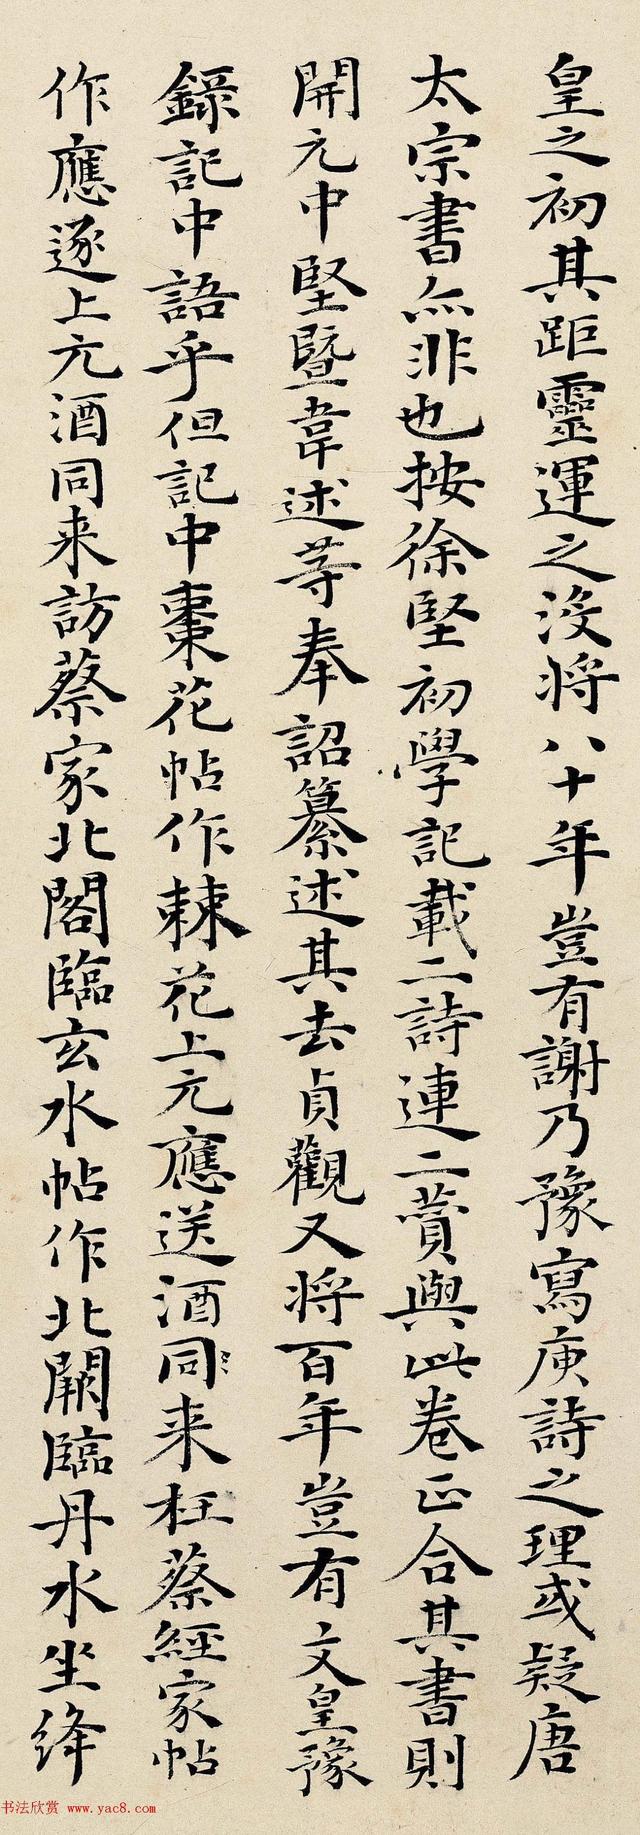 皇之初其距靈運之沒将八十年豈有謝乃豫寫庾詩之理或疑唐
太宗書亦非也按徐堅初學記載二詩連二賛與此卷正合其書則
開元中堅暨韋述等奉詔纂述其去貞觀又将百年豈有文皇豫
録記中語乎但記中棗花帖作棘花上元應送酒同来枉蔡經家帖
作應逐上元酒同来訪蔡家北閣臨玄水帖作北闕臨丹水坐絳
书法欣赏 www.yac8.com